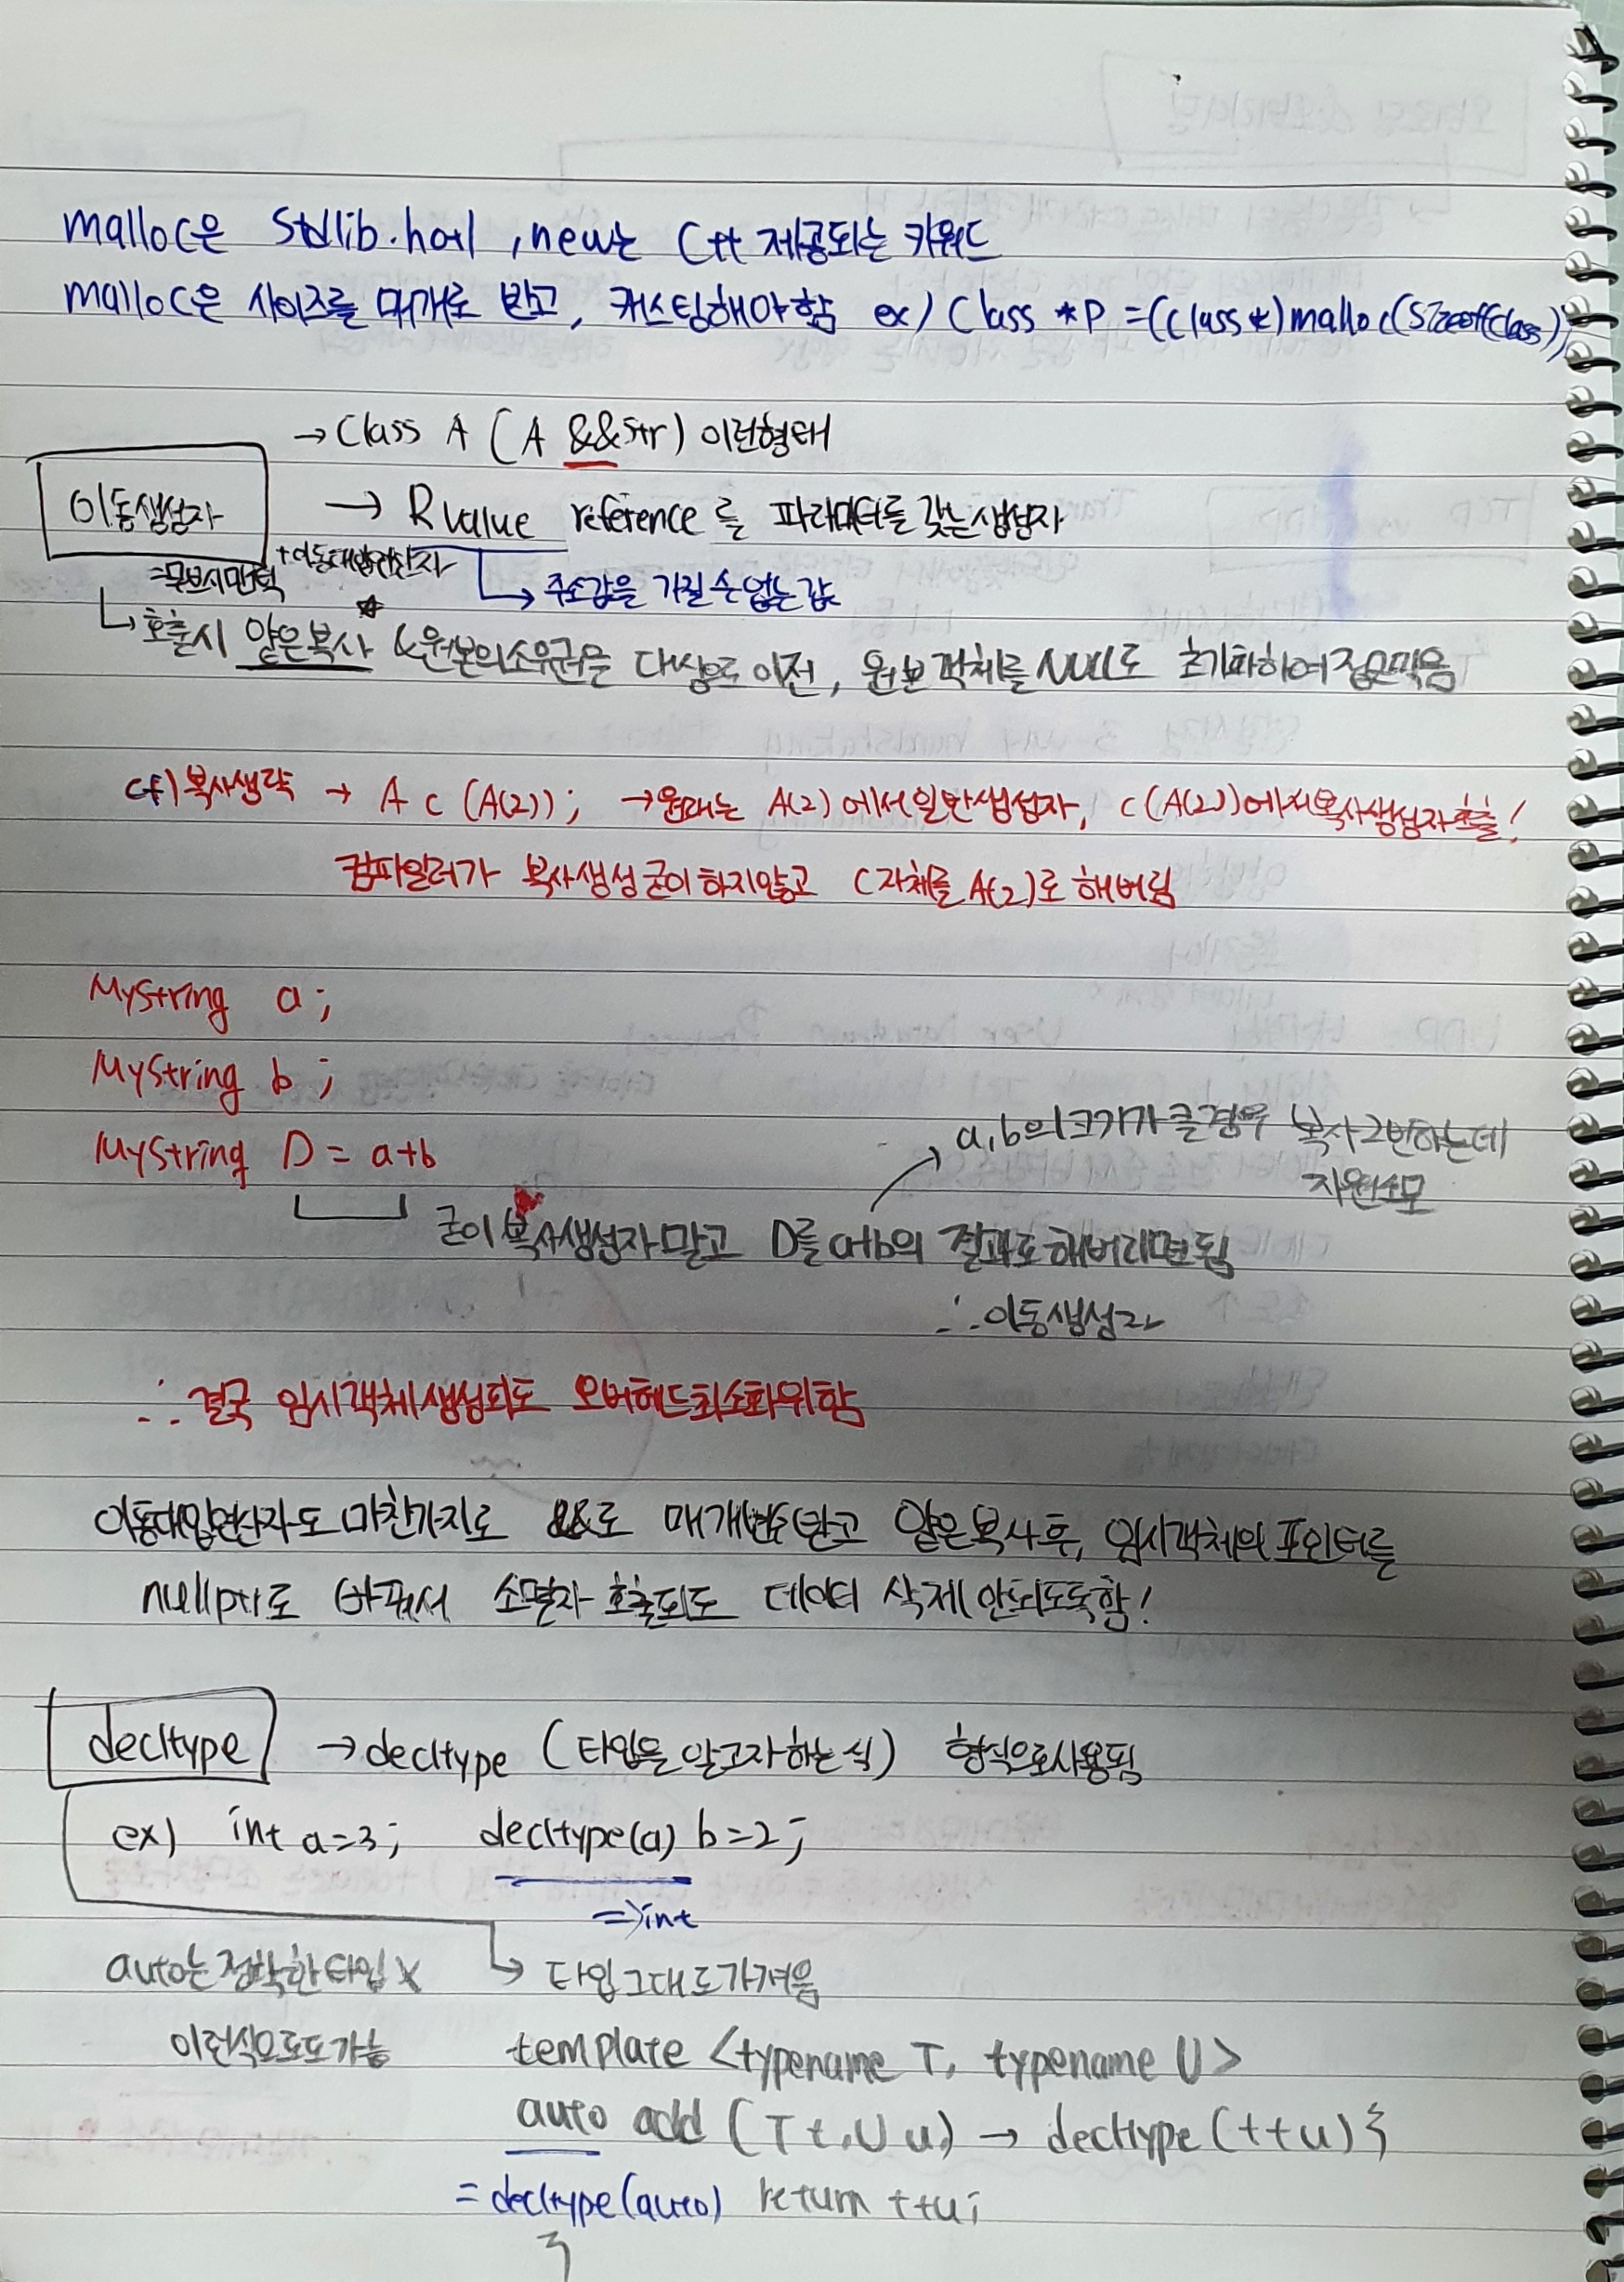 malloc은 stdlib.h에 , new는 C++ 제공되는 키워드
malloc은 사이즈를 매개로 받고, 캐스팅해야함 ex) Class *P =(class*)malloc(sizeof(class));
→ Class A ( A &&str) 이런형태
이동생성자 → Rvalue reference 를 파라미터를 갖는생성자
+이동대입연산자
→ 주소값을 가질 수 없는 값
↳ 호출시 얕은복사 & 원본의소유권을 대상으로 이전, 원본 객체를 NULL로 초기화하여 접근막음
cf) 복사생략 → A c (A(2)); → 원래는 A(2) 에서 일반생성자, c(A(2))에서 복사생성자호출!
컴파일러가 복사생성 굳이 하지않고 C자체를 A(2)로 해버림
MyString a;
MyString b;
MyString D = a+b
→ a,b의크기가 클경우 복사 2번하는데
자원소모
굳이 복사생성자말고 D를 a+b의 결과로 해버리면됨
∴ 이동생성자
∴ 결국 임시객체생성되도 오버헤드최소화위함
이동대입연산자도 마찬가지로 &&로 매개변수받고 얕은복사후, 임시객체의 포인터를
nullptr로 바꿔서 소멸자 호출되도 데이터 삭제안되도록함!
decltype → decltype (타입을 알고자하는 식) 형식으로사용됨
ex) int a=3; decltype(a) b=2;
=>int
auto는 정확한타입 X ↳ 타입그대로가져옴
이런식으로도가능 template <typename T, typename U>
auto add (T t, U u) → decltype (t+u) {
= decltype(auto) return t+u;
}